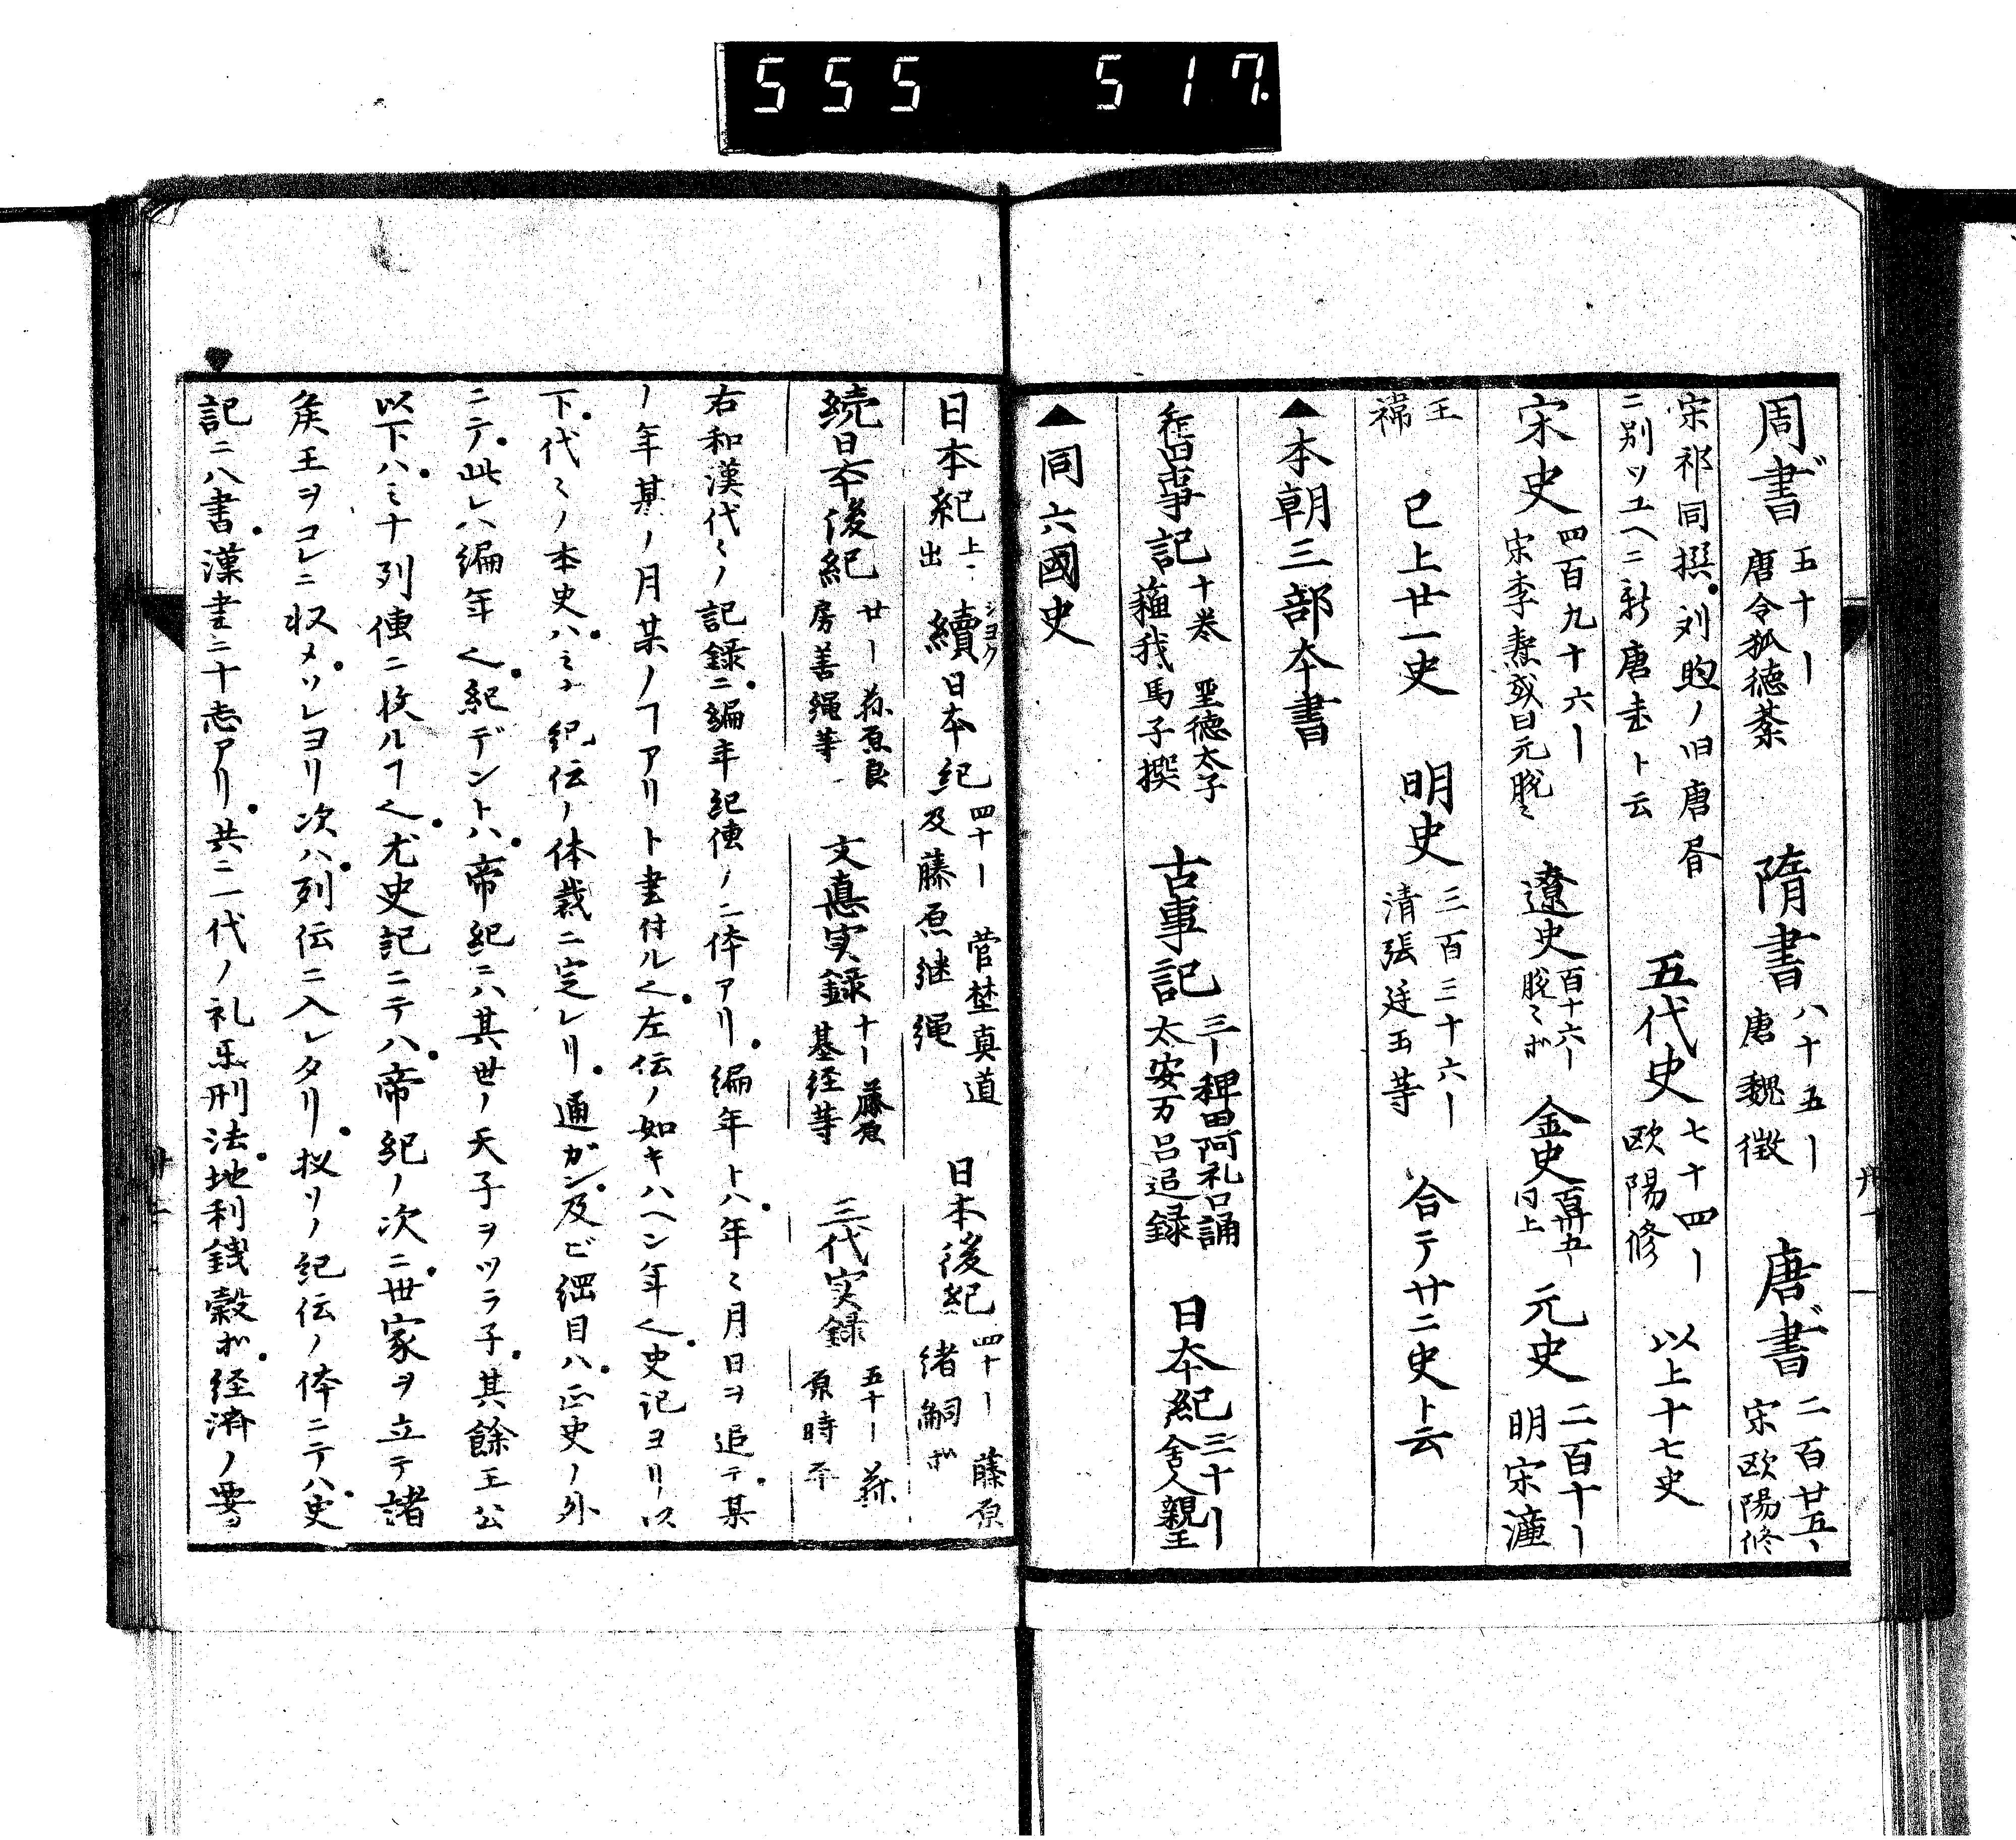 555 517.
周書 五十一 唐令狐徳棻 隋書 八十五一 唐魏徴 唐書 二百廿五、 宋欧陽修
宋祁同撰。刘昫ノ旧唐書
ニ別ツユヘニ新唐書ト云 五代史 七十四一 欧陽修 以上十七史
宋史 四百九十六一 宋李燾或曰元脱〻 遼史 百十六一 脱〻ホ 金史 百卅五 同上 元史 二百十一 明宋濂
王禕 已上廿一史 明史 三百三十六一 清張廷玉等 合テ廿二史ト云
▲本朝三部本書
旧事記 十巻 聖徳太子 蘓我馬子撰 古事記 三一 稗田阿礼口誦 太安万呂追録 日本紀 三十一 舍人親王
▲同六國史
日本紀 上ニ出 續日本紀 四十一 菅埜真道 及藤原継縄 日本後紀 四十一 藤原緒嗣ホ
ショク
続日本後紀 廿一 藤原良房善縄等 文徳実録 十一 藤原基経等 三代実録 五十一 藤原時平
右和漢代〻ノ記録ニ。編年紀傳ノ二体アリ。編年トハ。年〻月日ヲ追テ。某
ノ年某ノ月某ノヿアリト書付ル也。左伝ノ如キハヘン年也。史記ヨリ以
下。代〻ノ本史ハ。ミナ紀伝ノ体裁ニ定レリ。通ガン。及ビ綱目ハ。正史ノ外
ニテ。此レハ編年也。紀デントハ。帝紀ニハ其世ノ天子ヲツラ子。其餘王公
以下ハ。ミナ列傳ニ收ルヿ也。尤史記ニテハ。帝紀ノ次ニ。世家ヲ立テ諸
矦王ヲコレニ収メ。ソレヨリ次ハ。列伝ニ入レタリ。扨リノ紀伝ノ体ニテハ。史
記ニ八書。漢書ニ十志アリ。共ニ一代ノ礼乐刑法。地利銭穀ホ。経済ノ要